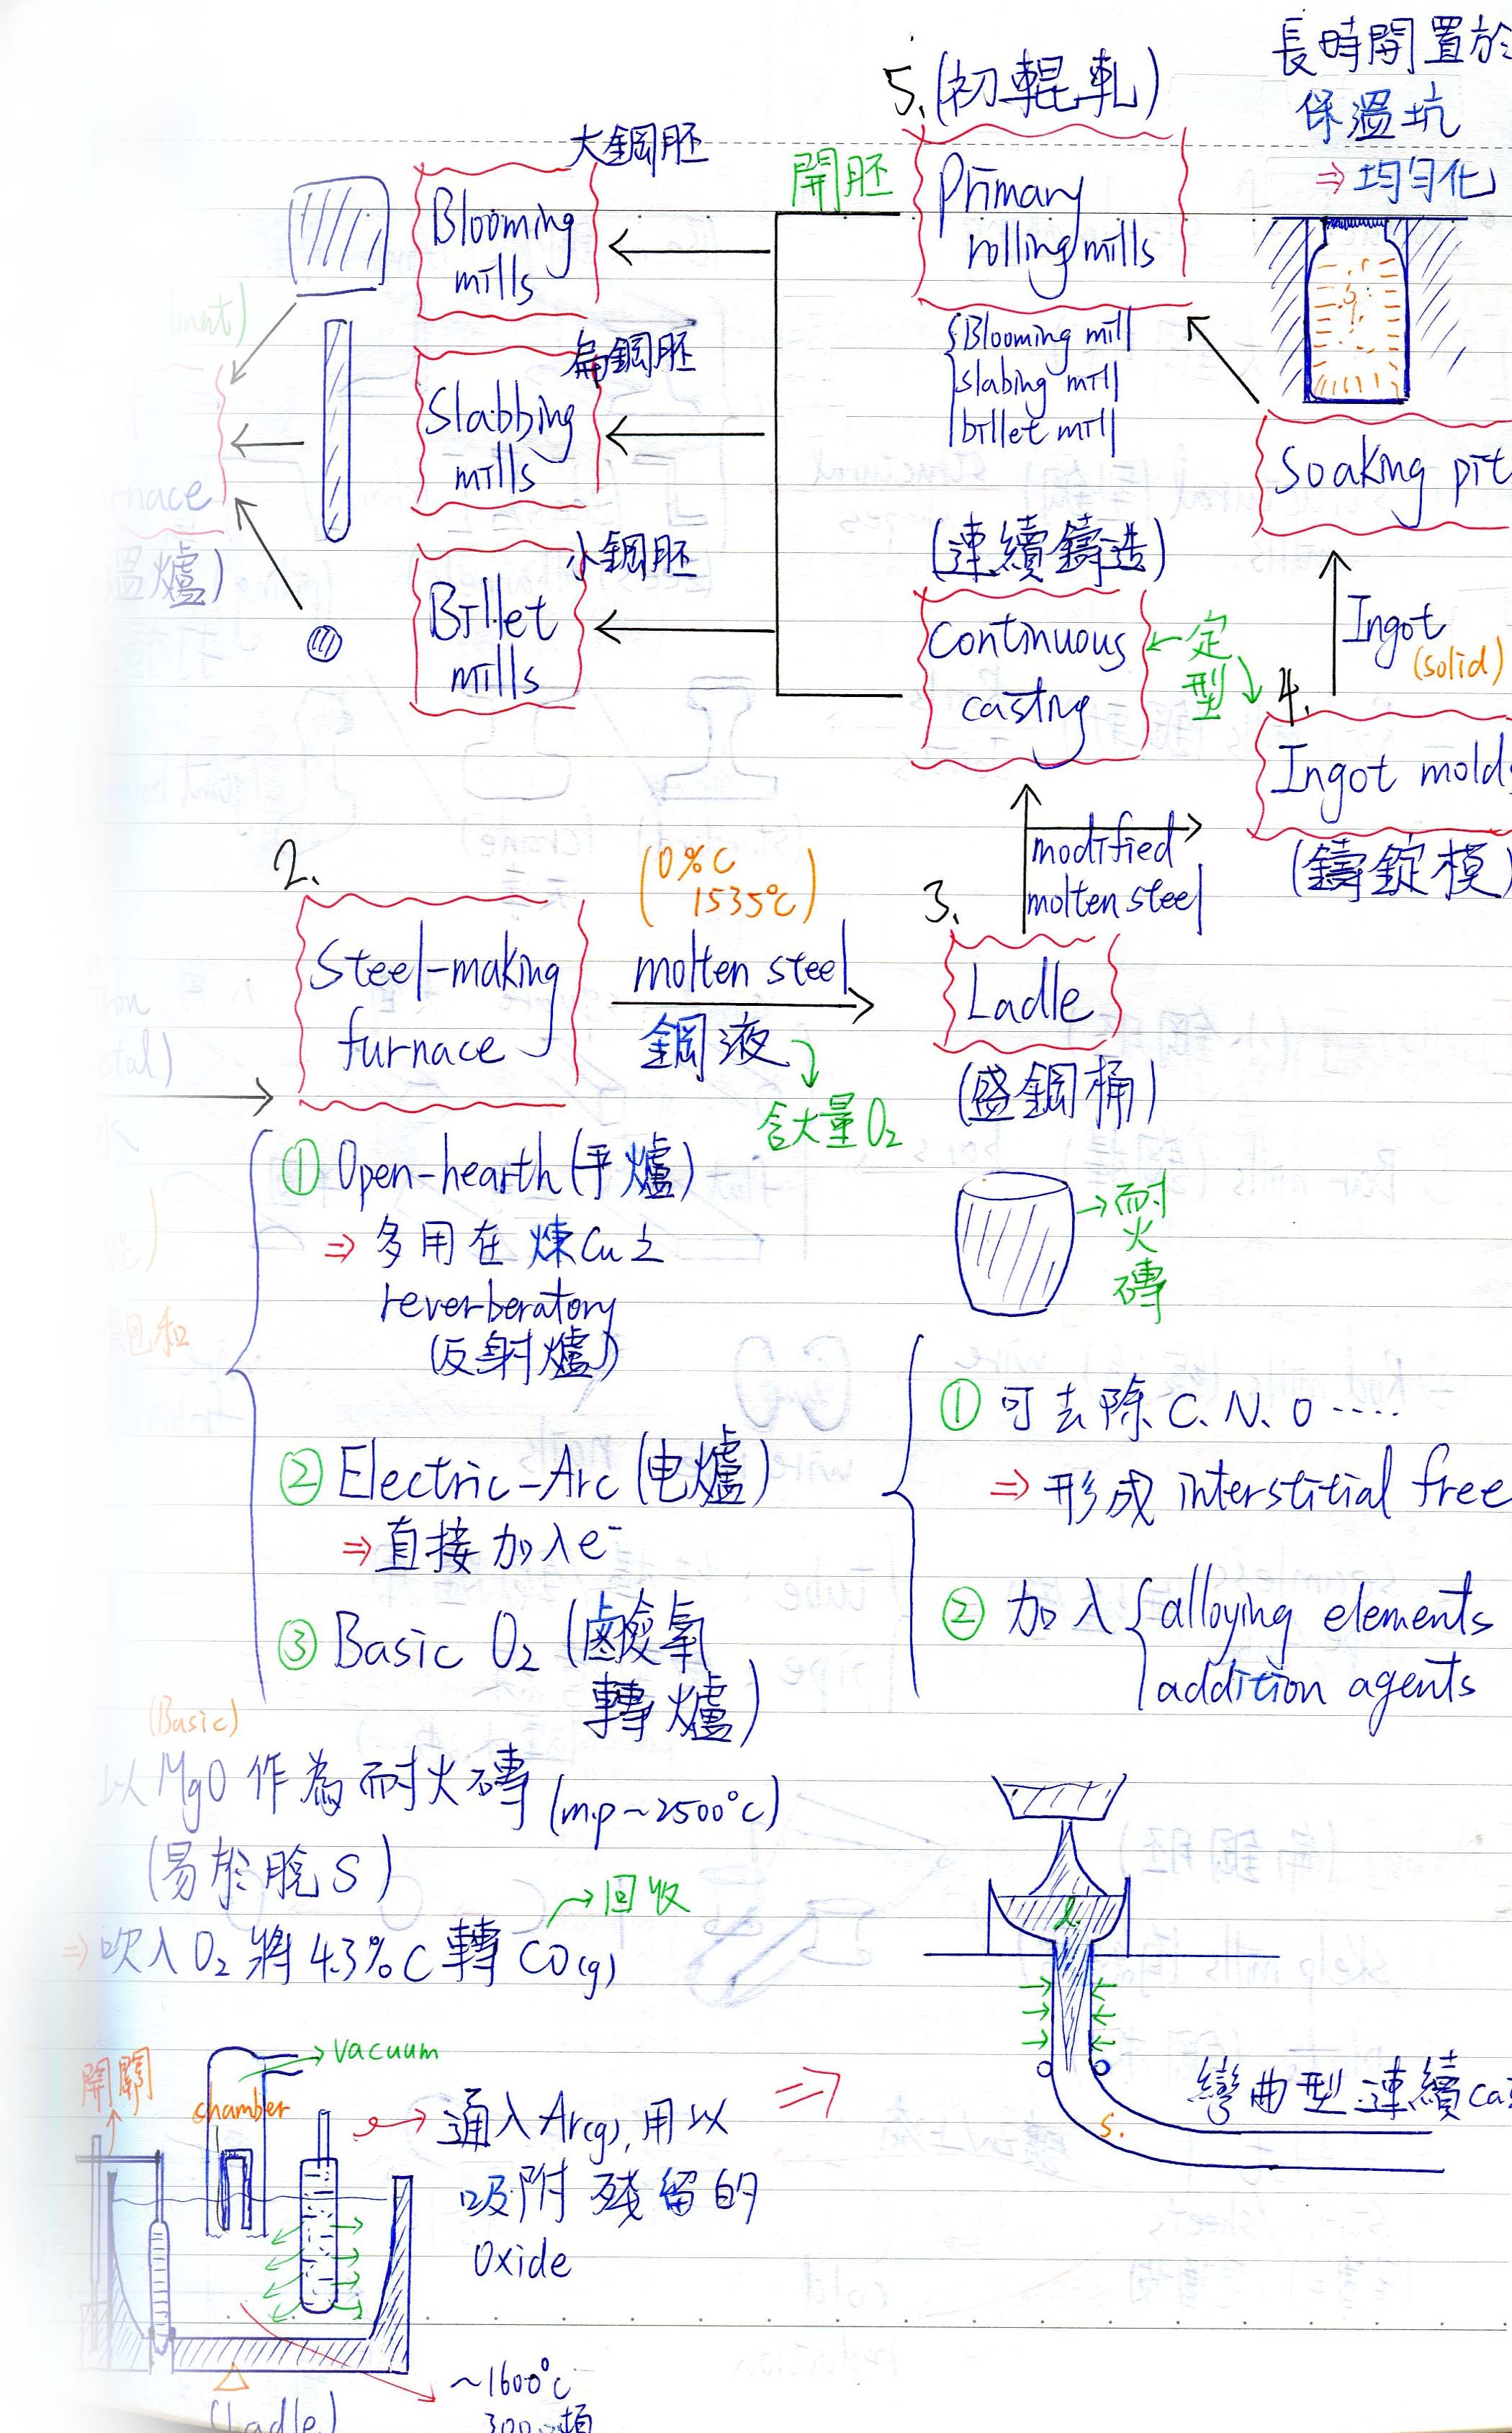 長時間置於
保溫坑
⇒ 均勻化
5. (初輥軋)
Primary
rolling mills
Blooming mill
slabing mill
billet mill
開胚
大鋼胚
Blooming
mills
扁鋼胚
Slabbing
mills
小鋼胚
Billet
mills
nace
溫爐)
Soaking pit
Ingot
(solid)
(連續鑄造)
continuous
casting
定
型
4.
Ingot mold
(鑄錠模)
modified
molten steel
2.
Steel-making
furnace
(0%C
1535°C)
molten steel
鋼液
含大量O₂
3.
Ladle
(盛鋼桶)
耐
火
磚
① Open-hearth (平爐)
⇒ 多用在煉Cu之
reverberatory
(反射爐)
② Electric-Arc (电爐)
⇒ 直接加入e⁻
③ Basic O₂ (鹼氧
轉爐)
(Basic)
以MgO作為耐火磚 (mp~2500°C)
(易於脫S)
⇒ 吹入O₂將4.3%C轉CO(g)
→回收
① 可去除C.N.O....
⇒ 形成 interstitial free
② 加入 alloying elements
addition agents
開關
vacuum
chamber
通入Ar(g),用以
吸附殘留的
Oxide
~1600°C
300頓
(Ladle)
⇒
l
s.
彎曲型連續cas